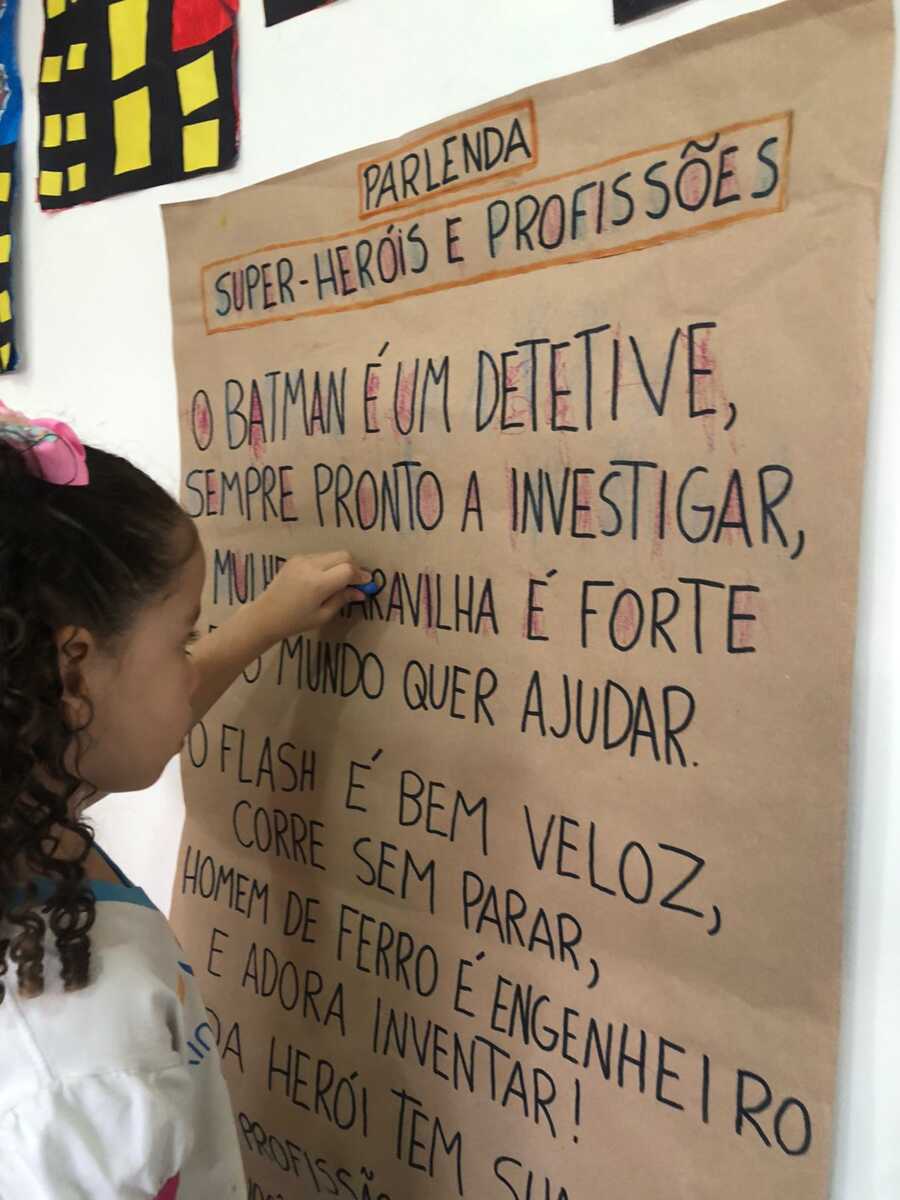 PARLENDA
SUPER-HERÓIS E PROFISSÕES
O BATMAN É UM DETETIVE,
SEMPRE PRONTO A INVESTIGAR,
MARAVILHA É FORTE
O MUNDO QUER AJUDAR.
O FLASH É BEM VELOZ,
CORRE SEM PARAR,
HOMEM DE FERRO É ENGENHEIRO
E ADORA INVENTAR!
HERÓI TEM SUA
PROFISSÃO